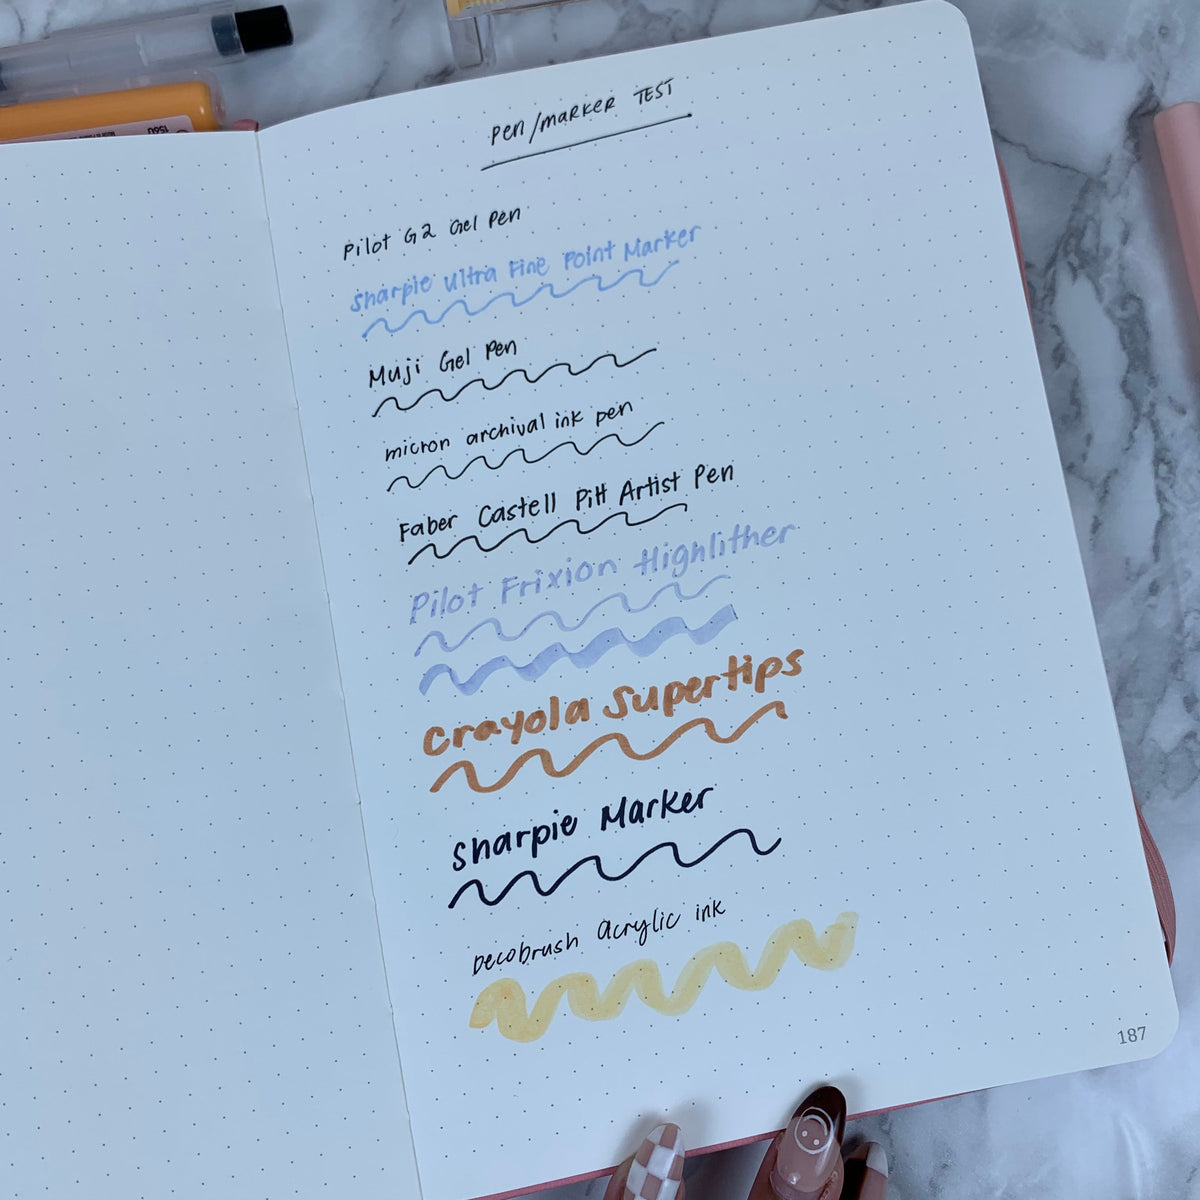 Pen/marker TEST
Pilot G2 Gel Pen
Sharpie Ultra Fine Point Marker
Muji Gel Pen
micron archival ink pen
Faber Castell Pitt Artist Pen
Pilot Frixion Highlither
Crayola Supertips
Sharpie Marker
Decobrush acrylic ink
187